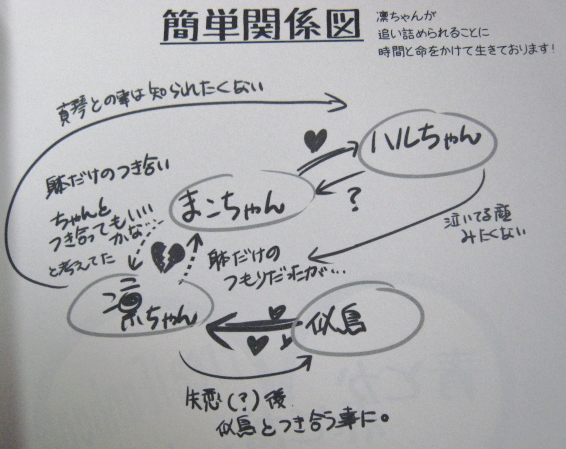 簡単関係図
凛ちゃんが
追い詰められることに
時間と命をかけて生きております!
真琴との事は知られたくない
ハルちゃん
躰だけのつき合い
まこちゃん
?
ちゃんと
つき合ってもいい
かな…
と考えてた
泣いてる
みたくない
躰だけの
つもりだったが…
凛ちゃん
似鳥
失恋(?)後
似鳥とつき合う事に。